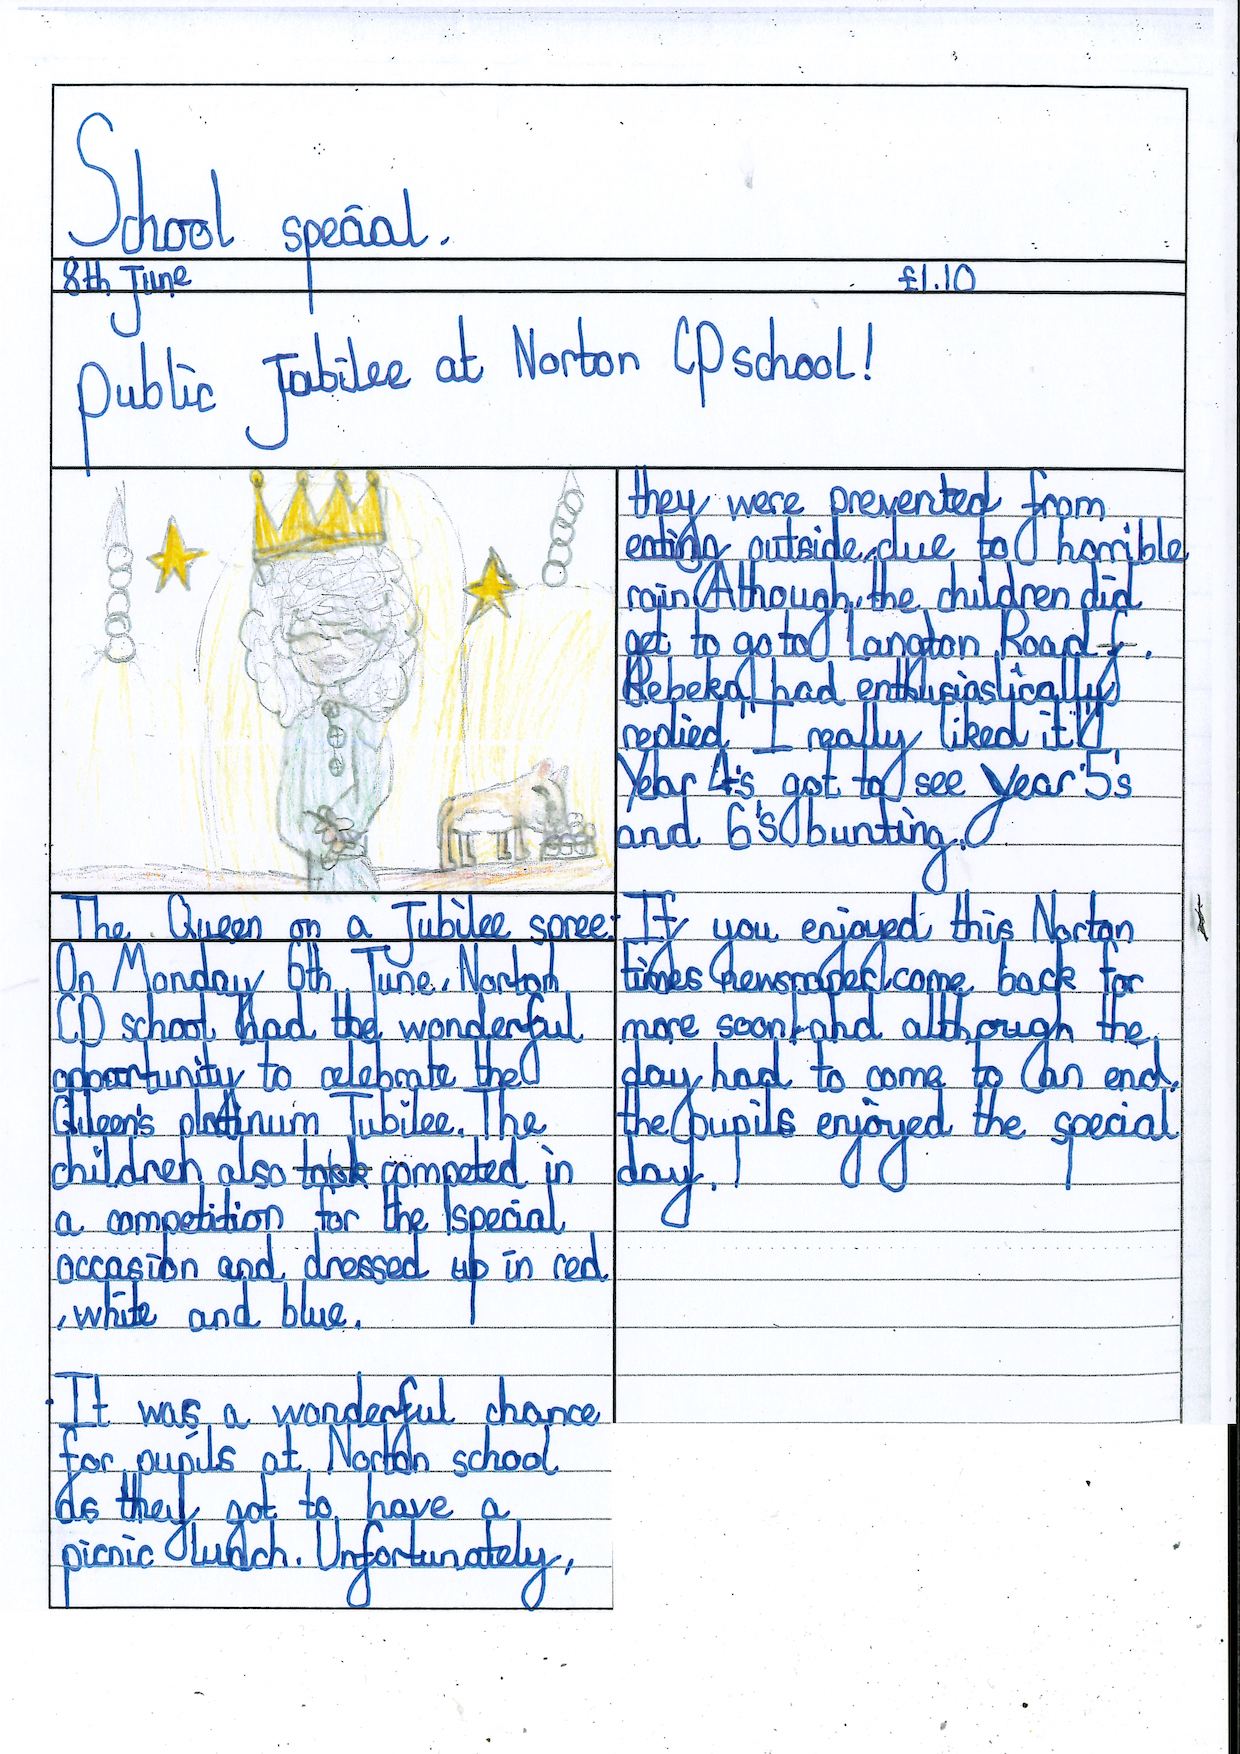 School special.
8th June
£1.10
Public Jubilee at Norton CP school!
The Queen on a Jubilee spree.
On Monday 6th June, Norton
CP school had the wonderful
opportunity to celebrate the
Queen's platinum Jubilee. The
children also took competed in
a competition for the special
occasion and dressed up in red
, white and blue.
It was a wonderful chance
for pupils at Norton school
as they got to have a
picnic lunch. Unfortunately,
they were prevented from
outside, due to horrible
rain. Although, the children did
get to go to Langton Road.
Rebeka had enthusiastically
replied "I really liked it!"
Year 4's got to see year 5's
and 6's bunting.
If you enjoyed this Norton
times newspaper, come back for
more soon! and although the
day had to come to an end,
the pupils enjoyed the special
day.